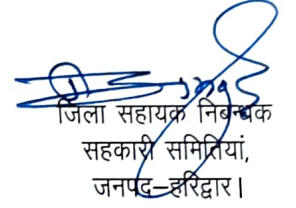 जिला सहायक निबन्धक
सहकारी समितियां,
जनपद–हरिद्वार।